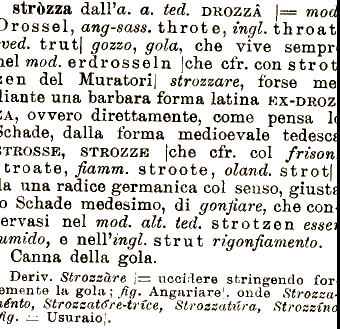 stròzza dall'a. a. ted. DROZZÂ [= mod
Drossel, ang-sass. throte, ingl. throat
sved. trut] gozzo, gola, che vive sempr
nel mod. erdrosseln [che cfr. con strot
zen del Muratori] strozzare, forse me
diante una barbara forma latina EX-DROZ
ZA, ovvero direttamente, come pensa l
Schade, dalla forma medioevale tedesca
STROSSE, STROZZE [che cfr. col frison.
troate, fiamm. stroote, oland. strot]
da una radice germanica col senso, giusta
lo Schade medesimo, di gonfiare, che con
servasi nel mod. alt. ted. strotzen esser
tumido, e nell'ingl. strut rigonfiamento.
Canna della gola.
Deriv. Strozzàre [= uccidere stringendo for-
temente la gola; fig. Angariare], onde Strozza-
ménto, Strozzatóre-tríce, Strozzatúra, Strozzíno
[fig. = Usuraio].